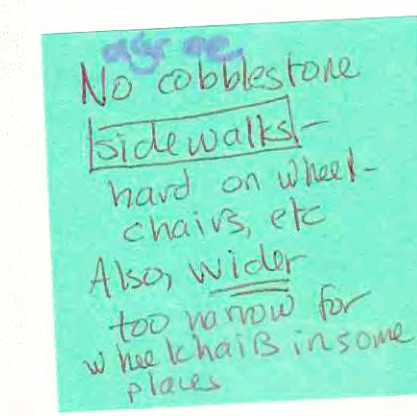 agree
No cobblestone
sidewalks-
hard on wheel-
chairs, etc
Also, wider
too narrow for
wheelchairs in some
places